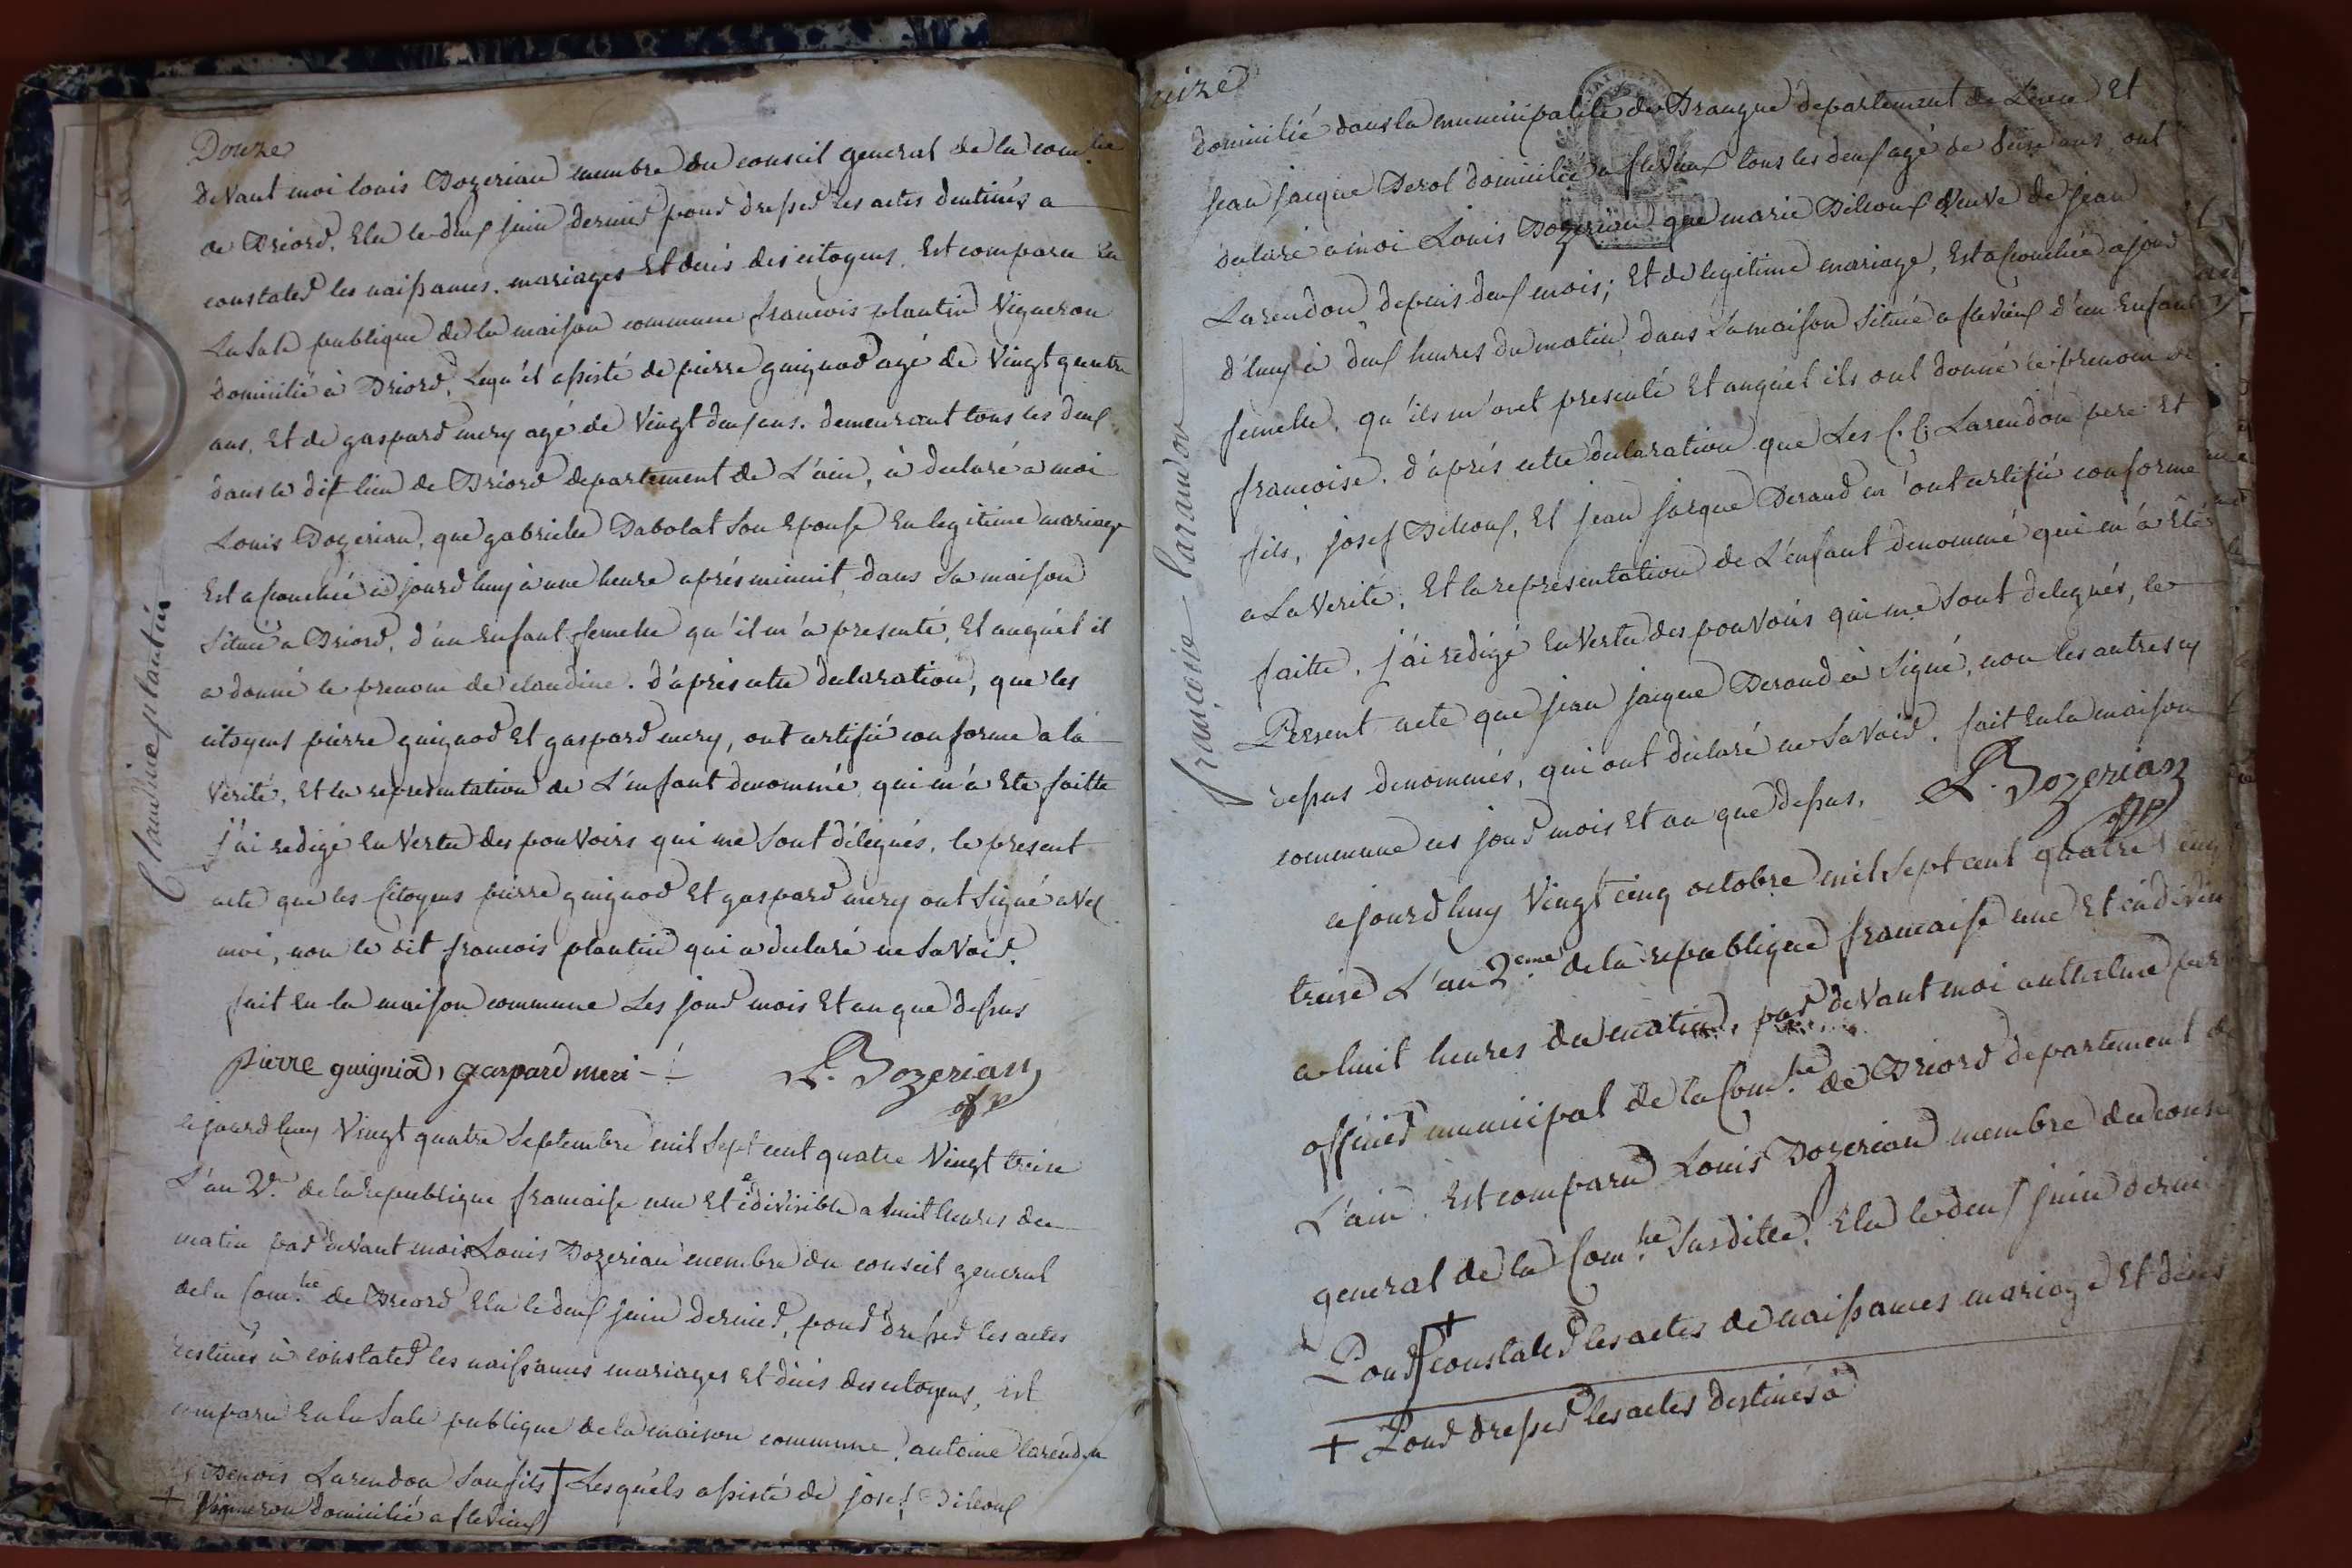 Douze
devant moi louis Bozerian membre du conseil general de la com.ne
de Briord, Elu le deux juin dernier pour dresser les actes destinés a
constater les naissances. mariages Et decés des citoyens. Est comparu En
La sale publique de la maison commune francois plantin Vigneron
domicilié à Briord, Lequ'el assisté de pierre guignod agé de Vingt quatre
ans, Et de gaspard mery agé de Vingt deux ans. demeurant tous les deux
dans le dit lieu de Briord departement de L'ain, à declaré a moi
Louis Bozerian, que gabrielle Dabolat son Epouse En legitime mariage
Est accouchée a jourd huy à une heure aprés minuit, dans sa maison
située a Briord, d'un Enfant femelle qu'il m'a presenté, Et auquél il
a donné le prenom de claudine. d'aprés cette declaration, que les
citoyens pierre guignod Et gaspard mery, ont certifié conforme a la
Verité, Et la representation de L'enfant denommé qui m'a Eté faitte
j'ai redigé En Vertu des pouvoirs qui me sont délegués, le present
acte que les Citoyens pierre guignod Et gaspard mery ont signé avec
moi, non le dit francois plantin qui a declaré ne savoir.
fait En la maison commune Les jour mois Et an que dessus
pierre guigniod, gaspard meri L. Bozerian
Claudine plantin
a jourd huy Vingt quatre Septembre mil sept cent quatre Vingt treise
L'an 2.e de la republique francaise une Et idivisible a huit heures du
matin par devant moi Louis Bozerian membre du conseil general
de la Com.ne de Briord Elu le deux juin dernier, pour dresser les actes
destinés à constater les naissances mariages Et décés des citoyens, est
comparu En la sale publique de la maison commune, antoine larendon
Et Benois Larendon son fils + Lesquéls assisté de josef Dilhoux
+ Vigneron domicilié a flevieux
domicilié dans la municipalité de Brangue departement de Lisere Et
jean jacque Derol domicilié a flevieux tous les deux agé de ans, ont
declaré a moi Louis Bozerian que marie Dilhoux veuve de jean
Larendon depuis deux mois; Et de legitime mariage, Est accouchée a jour
d'huy à deux heures du matin, dans sa maison située a flevieux d'un Enfant
femelle, qu'ils m'ont presenté Et auquél ils ont donné le prenom de
francoise. d'aprés cette declaration que Les C.C. Larendon pere Et
fils, josef Dilhoux, Et jean jacque Deraud m'ont certifié conforme
a La Verité, Et la representation de L'enfant denommé qui m'a Eté
faitte, j'ai redigé En Vertu des pouvoirs qui me sont delegués, le
Present acte que jean jacque Deraud à signé, non les autres cy
dessus denommés, qui ont déclaré ne savoir. fait En la maison
commune ces jour mois Et an que dessus. L. Bozerian
francoise larandon
a jourd huy Vingt cinq octobre mil sept cent quatre
treise L'an 2eme de la republique francaise une Et indivisi
a huit heures du matin, par devant moi
officier municipal de la Com.ne de Briord departement de
L'ain. Est comparu Louis Bozerian membre du
general de la Com.ne susditte. Elu le deux juin derni
Pour + constater les actes de naissances mariage Et decés
+ Pour dresser les actes destinés à